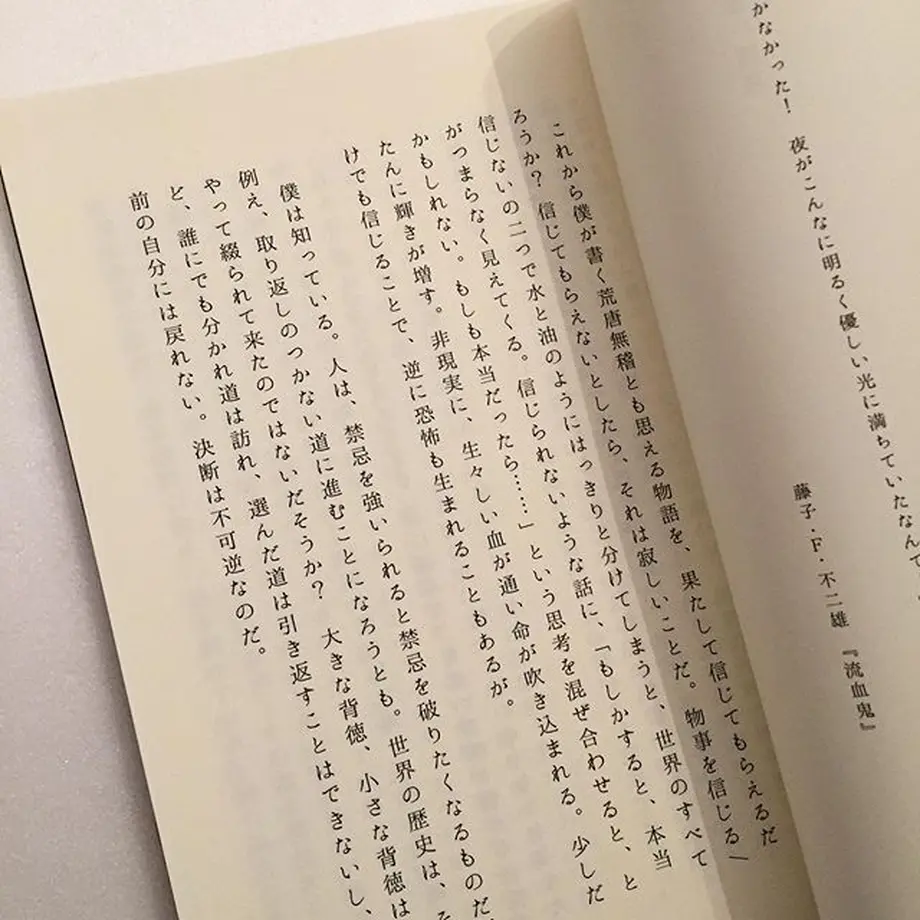 かなかった！　夜がこんなに明るく優しい光に満ちていたなんて
藤子・F・不二雄『流血鬼』
これから僕が書く荒唐無稽とも思える物語を、果たして信じてもらえるだ
ろうか？　信じてもらえないとしたら、それは寂しいことだ。物事を信じる―
信じないの二つで水と油のようにはっきりと分けてしまうと、世界のすべて
がつまらなく見えてくる。信じられないような話に、「もしかすると、本当
かもしれない。もしも本当だったら……」という思考を混ぜ合わせると、と
たんに輝きが増す。非現実に、生々しい血が通い命が吹き込まれる。少しだ
けでも信じることで、逆に恐怖も生まれることもあるが。
僕は知っている。人は、禁忌を強いられると禁忌を破りたくなるものだ
例え、取り返しのつかない道に進むことになろうとも。世界の歴史は、そ
やって綴られて来たのではないだそうか？　大きな背徳、小さな背徳は
ど、誰にでも分かれ道は訪れ、選んだ道は引き返すことはできないし、
前の自分には戻れない。決断は不可逆なのだ。